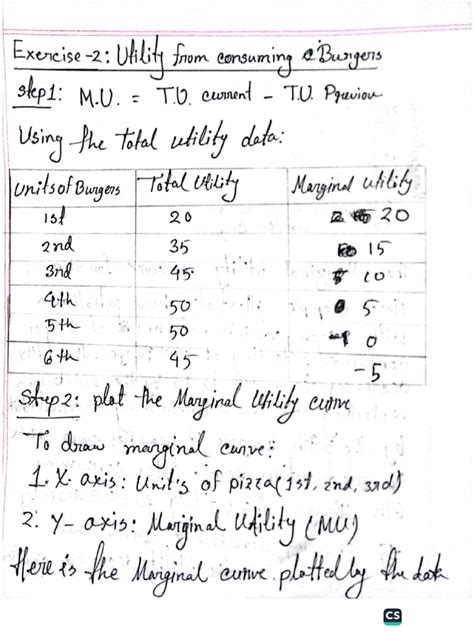 Exercise-2: Utility from consuming Burgers
Step1: M.U. = T.U. current - T.U. Previou
Using the Total utility data:
Units of Burgers Total Utility Marginal utility
1st 20 20
2nd 35 15
3rd 45 10
4th 50 5
5th 50 0
6th 45 -5
Step2: plot the Marginal Utility curve
To draw marginal curve:
1. X-axis: Unit's of pizza (1st, 2nd, 3rd)
2. Y-axis: Marginal Utility (MU)
Here is the Marginal curve plotted by the data
CS